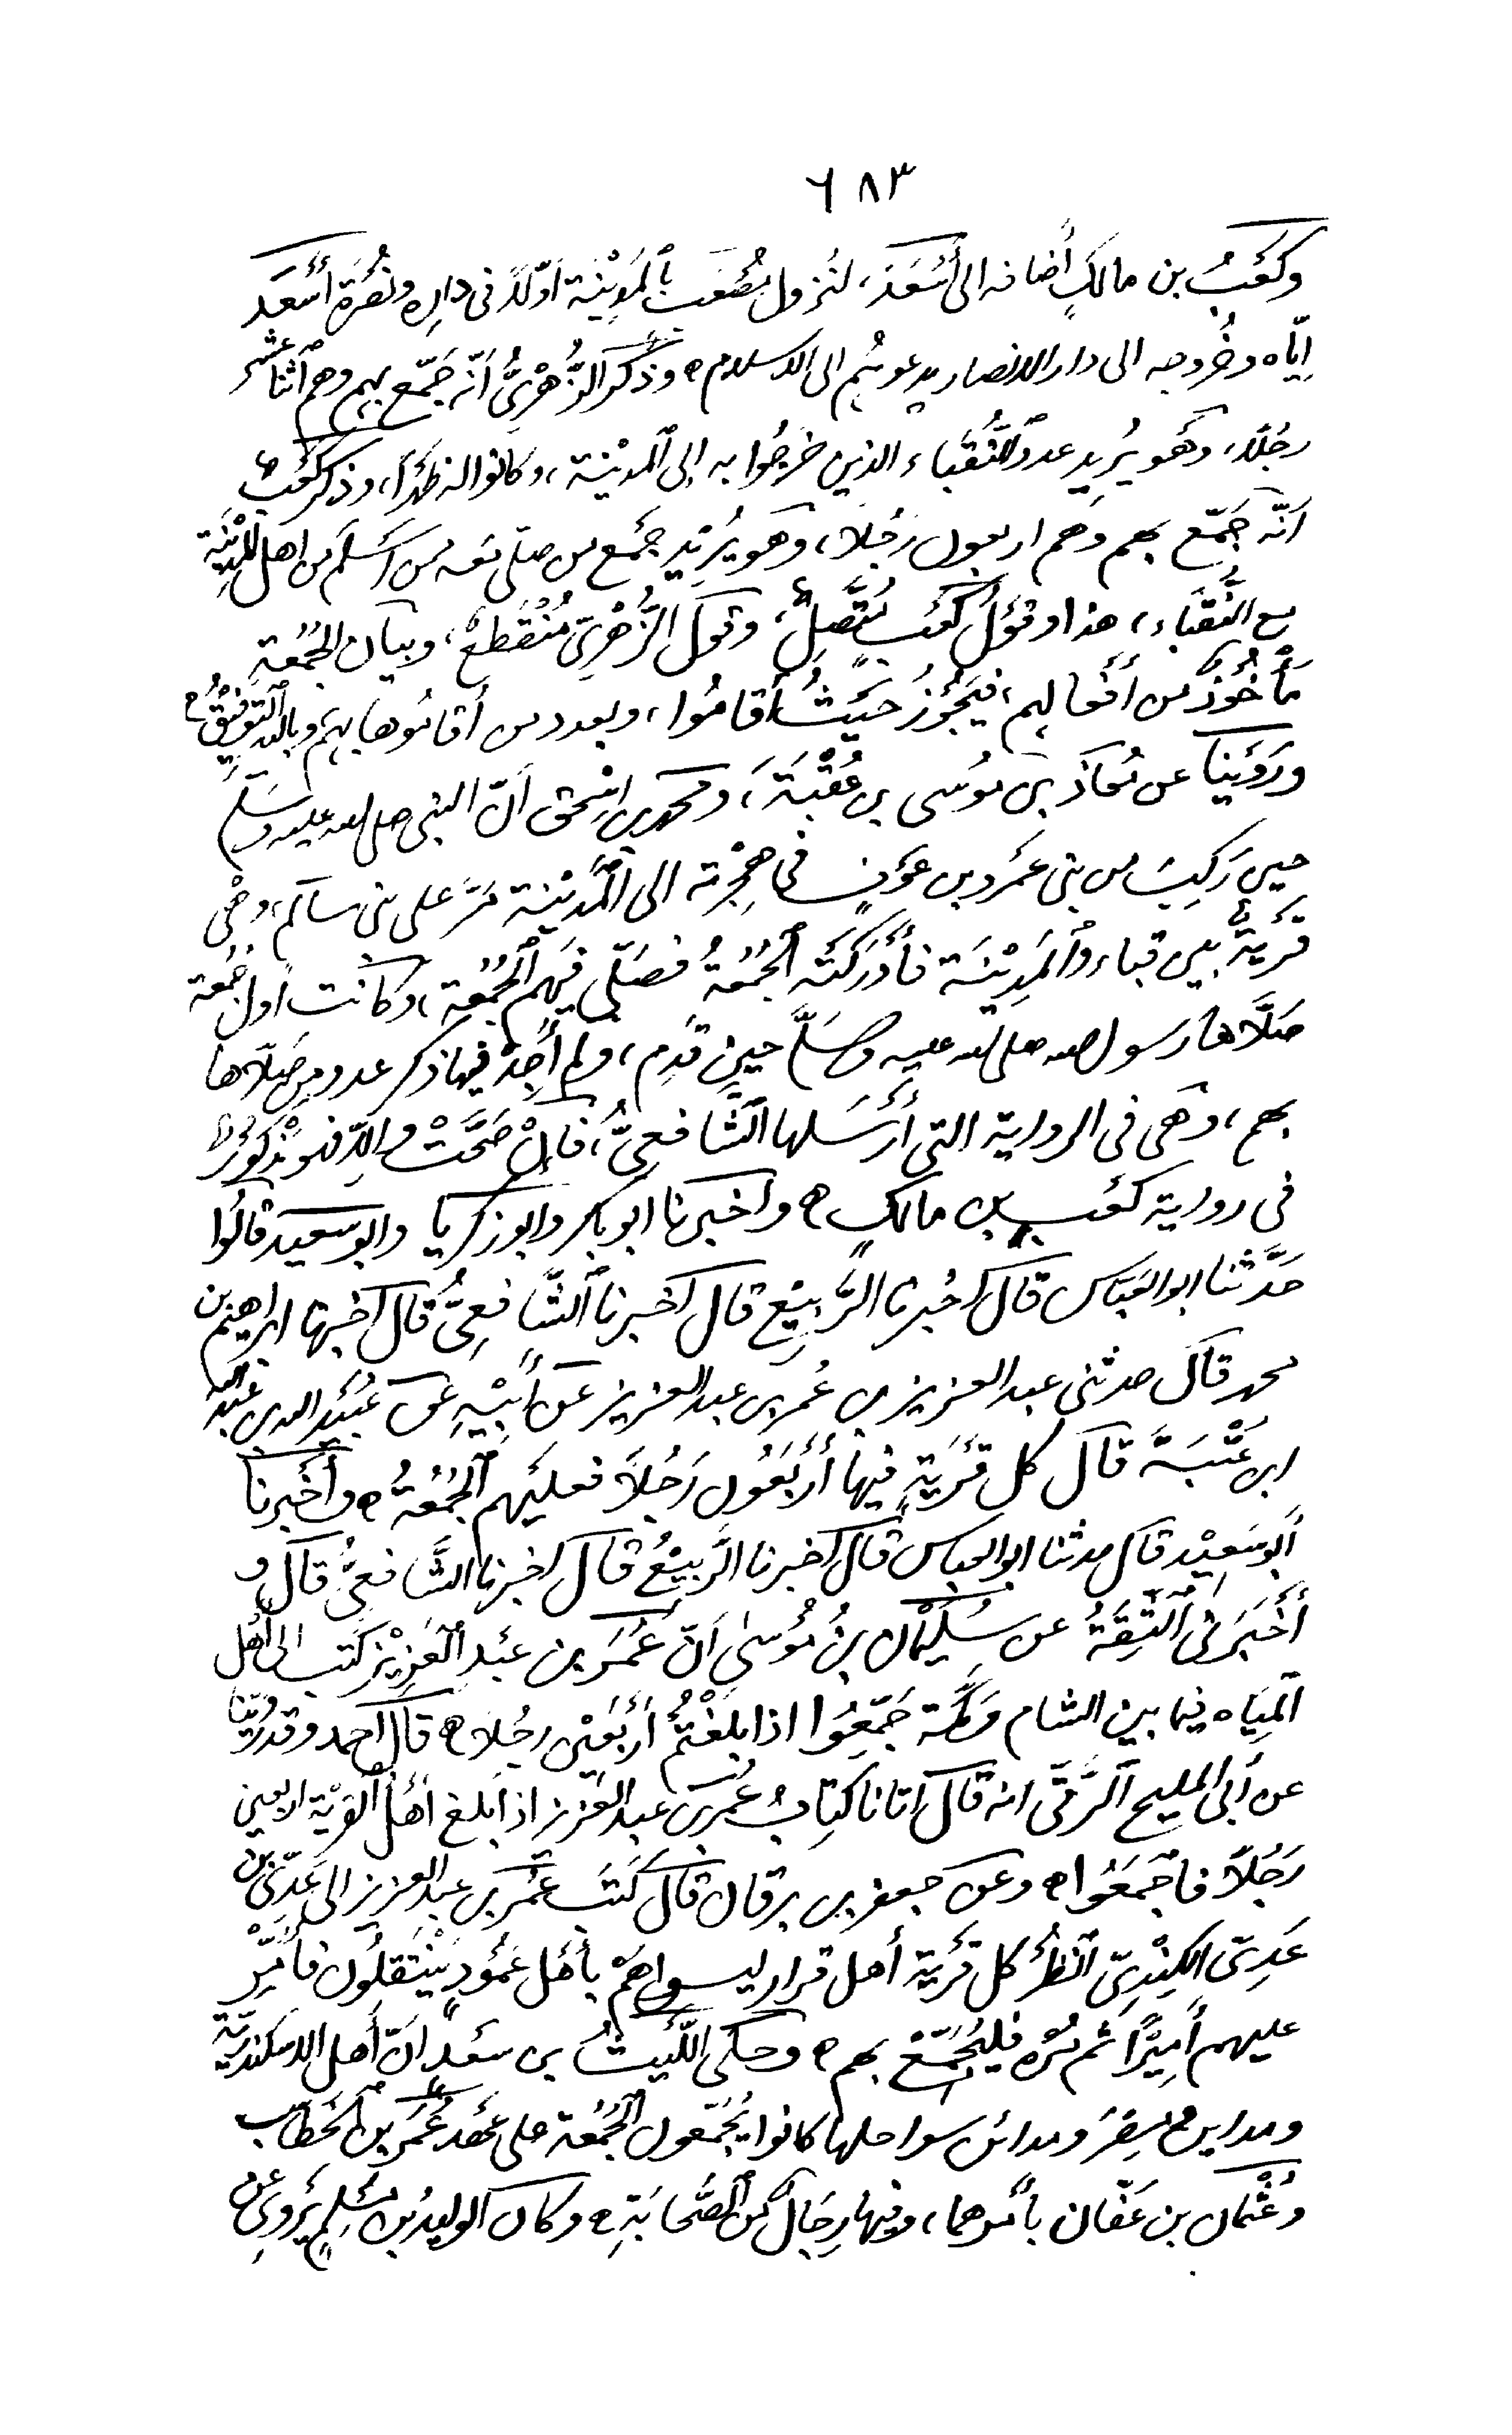 ٦٨٣
وكَعْبُ بن مالكٍ أضافه الى أَسْعَدَ، لنُزول مُصْعَب بِالْمَدِيْنَة أَوّلًا فى دارِه ونُصْرَة أَسْعَد
اِيّاه وخُروجه الى دار الانصار يدعوهُم الى الاسلام ه وذكر الزُّهْرِىُّ اَنّه جَمّع بِهم وهم اثنا عشر
رجُلًا، وهُو يُرِيد عدد النُّقَباء الذين خرجُوا به إلى الْمَدِيْنة، وكانوا له ظَهْرًا، وذكر كَعْبٌ
اَنّه جَمّع بهم وهم اربعون رَجُلًا، وهو يُرِيْد جَمْع من صلّى معه من اَسْلَمَ من اهل الْمَدِيْنَة
مع النُّقَبَاء، هذا وقَوْلُ كَعْبٍ مُتَّصِلٌ، وقول الزُّهْرِىّ مُنْقَطِعٌ، وبيان الجُمُعَةِ
مَأْخُوْذٌ من أَفْعَالِهِم، فيَجُوْزُ حَيْثُ أَقامُوا، وبعدد من أقامُوها بِهَم وبالله التَّوْفِيْقُ ه
ورَوَيْنا عن مُعاذ بن مُوسى بن عُقْبَةَ، ومحمد بن اِسْحٰق اَنّ النبى صلى الله عليه وسَلَّم
حين رَكِبَ من بنى عَمْرو بن عَوْفٍ فى هِجْرته الى الْمَدِيْنَة مَرَّ على بنى سالم، وهْى
قَرْيَةٌ بين قباء والْمَدِيْنَة فأَدْرَكَتْه الْجُمُعَةُ فصَلّى فيهم الْجُمُعَة، وكانت أول جُمُعة
صَلّاها رسول الله صلى الله عليه وسَلَّم حين قَدِم، ولم أَجِدْ فيها ذكر عدد من صَلّاها
بهم، وهَى فى الرواية التى أَرْسَلها الشَّافِعِىُّ، فاِنْ صَحَّتْ والِّا فهو مَذْكُوْرٌ
فى رواية كَعْب بن مالكٍ ه واخبرنا ابو بكر وابو زكريا وابو سعيد قالُوا
حَدَّثنا ابو العَبّاس قال اخبرنا الرَّبِيْع قال اخبرنا الشَّافِعِىُّ قال اخبرنا ابراهيم بن
محمد قال حدثنى عبد العزيز بن عُمَر بن عبد العزيز عن أَبِيْه عن عُبَيْد الله بن عبد الله
ابن عُتْبَةَ قال كل قَرْيَةٍ فيها أَرْبَعُون رَجُلًا فعليْهم الْجُمُعَةُ ه وأَخْبرنا
أبو سَعِيْد قال حدثنا ابو العباس قال اخبرنا الرَّبِيْعُ قال اخبرنا الشَّافعىُّ قال و
أَخْبَرَنى الثِّقَةُ عن سُلَيْمان بن مُوْسىٰ اَنّ عُمَر بن عَبْد الْعَزِيْز كتب الى أَهْل
الْمِيَاه فيما بين الشام ومَكّة جَمِّعُوا اذا بَلَغْتُمْ أَرْبَعَيْن رجُلًا ه قال احمد وقد رُوِّيْنا
عن أبى المليح الرَّقّى انه قال اتانا كِتابُ عُمَر بن عبد العزيز اذا بَلغ أَهْلُ الْقَرْيَة اربعين
رَجُلًا فاجْمَعُوا ه وعن جعفر بن برقان قال كَتَبَ عُمَر بن عبد العزيز الى عَدِىّ بن
عَدِىّ الكِنْدِىّ اُنْظُرْ كل قَرْيَة أهل قرار ليسوا هَمْ بأَهْل عَمُوْد يَنْتَقِلُون فأَمِّرْ
عليهم أَمِيْرًا ثم مُرْه فليُجَمِّعْ بهم ه وحكى اللَّيْثُ بن سَعْد اَنّ أَهل الاسكندرية
ومداين مِصْرَ ومدائن سواحلها كانوا يُجَمّعون الْجُمُعَة على عَهْد عُمَر بن الْخَطّاب
وعُثْمان بن عَفّان بأَمْرهما، وفيها رِجَالٌ مِن الصَّحَابَةِ ه وكان الوليدُ بن مُسْلِمٍ يَرْوِى عن